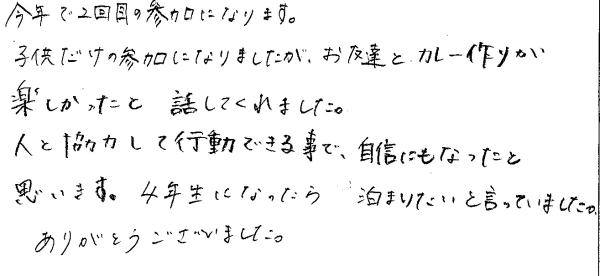 今年で2回目の参加になります。
子供だけの参加になりましたが、お友達とカレー作りが
楽しかったと 話してくれました。
人と協力して行動できる事で、自信にもなったと
思います。4年生になったら 泊まりたいと言っていました。
ありがとうございました。